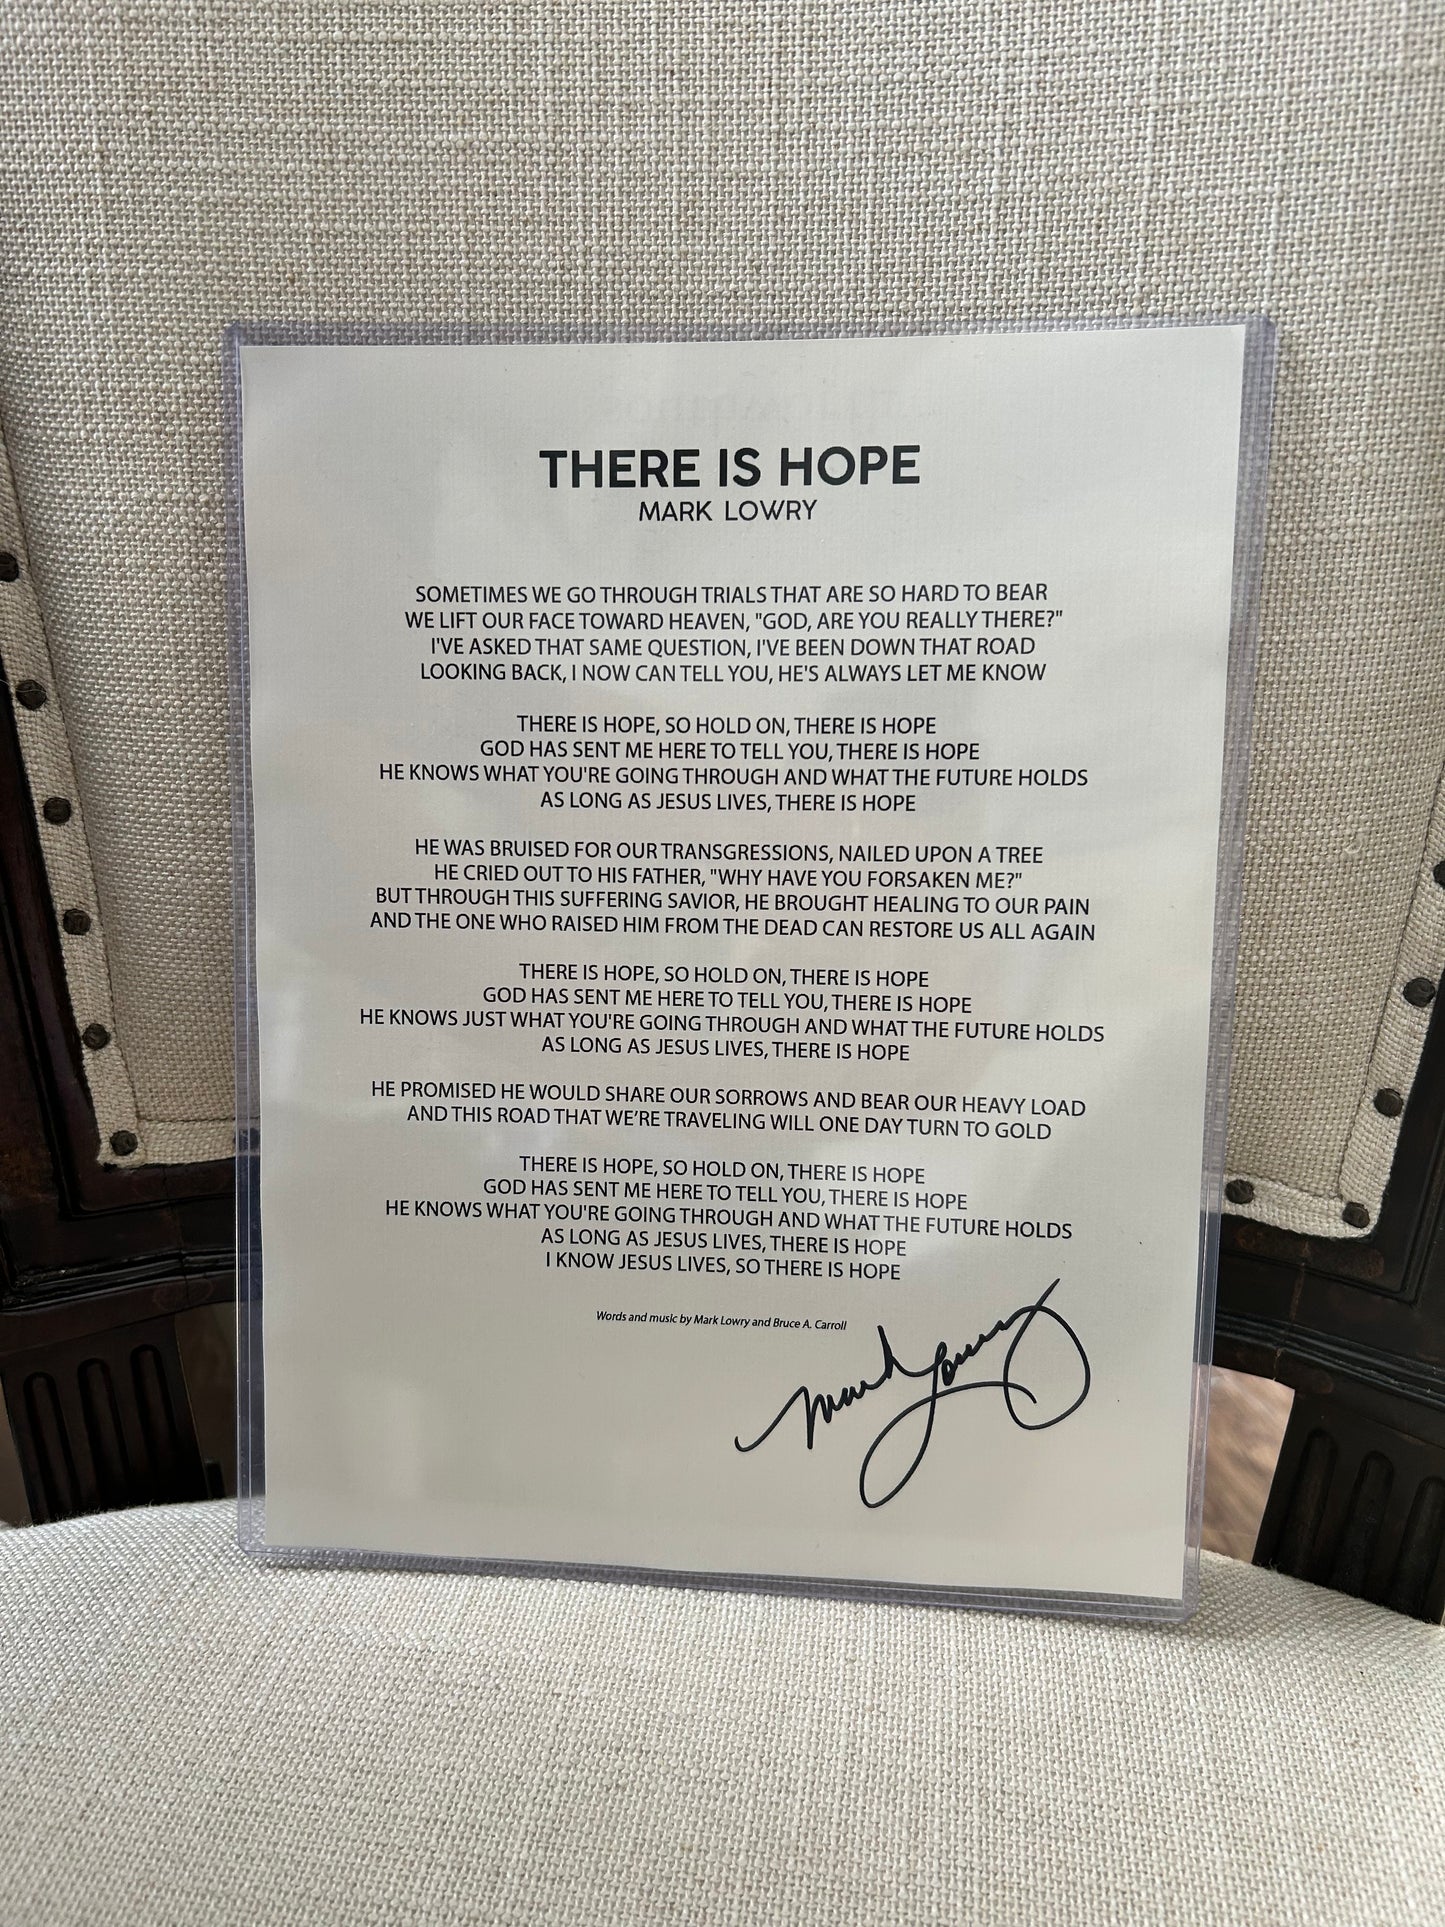 THERE IS HOPE
MARK LOWRY
SOMETIMES WE GO THROUGH TRIALS THAT ARE SO HARD TO BEAR
WE LIFT OUR FACE TOWARD HEAVEN, "GOD, ARE YOU REALLY THERE?"
I'VE ASKED THAT SAME QUESTION, I'VE BEEN DOWN THAT ROAD
LOOKING BACK, I NOW CAN TELL YOU, HE'S ALWAYS LET ME KNOW
THERE IS HOPE, SO HOLD ON, THERE IS HOPE
GOD HAS SENT ME HERE TO TELL YOU, THERE IS HOPE
HE KNOWS WHAT YOU'RE GOING THROUGH AND WHAT THE FUTURE HOLDS
AS LONG AS JESUS LIVES, THERE IS HOPE
HE WAS BRUISED FOR OUR TRANSGRESSIONS, NAILED UPON A TREE
HE CRIED OUT TO HIS FATHER, "WHY HAVE YOU FORSAKEN ME?"
BUT THROUGH THIS SUFFERING SAVIOR, HE BROUGHT HEALING TO OUR PAIN
AND THE ONE WHO RAISED HIM FROM THE DEAD CAN RESTORE US ALL AGAIN
THERE IS HOPE, SO HOLD ON, THERE IS HOPE
GOD HAS SENT ME HERE TO TELL YOU, THERE IS HOPE
HE KNOWS JUST WHAT YOU'RE GOING THROUGH AND WHAT THE FUTURE HOLDS
AS LONG AS JESUS LIVES, THERE IS HOPE
HE PROMISED HE WOULD SHARE OUR SORROWS AND BEAR OUR HEAVY LOAD
AND THIS ROAD THAT WE’RE TRAVELING WILL ONE DAY TURN TO GOLD
THERE IS HOPE, SO HOLD ON, THERE IS HOPE
GOD HAS SENT ME HERE TO TELL YOU, THERE IS HOPE
HE KNOWS WHAT YOU'RE GOING THROUGH AND WHAT THE FUTURE HOLDS
AS LONG AS JESUS LIVES, THERE IS HOPE
I KNOW JESUS LIVES, SO THERE IS HOPE
Words and music by Mark Lowry and Bruce A. Carroll
Mark Lowry